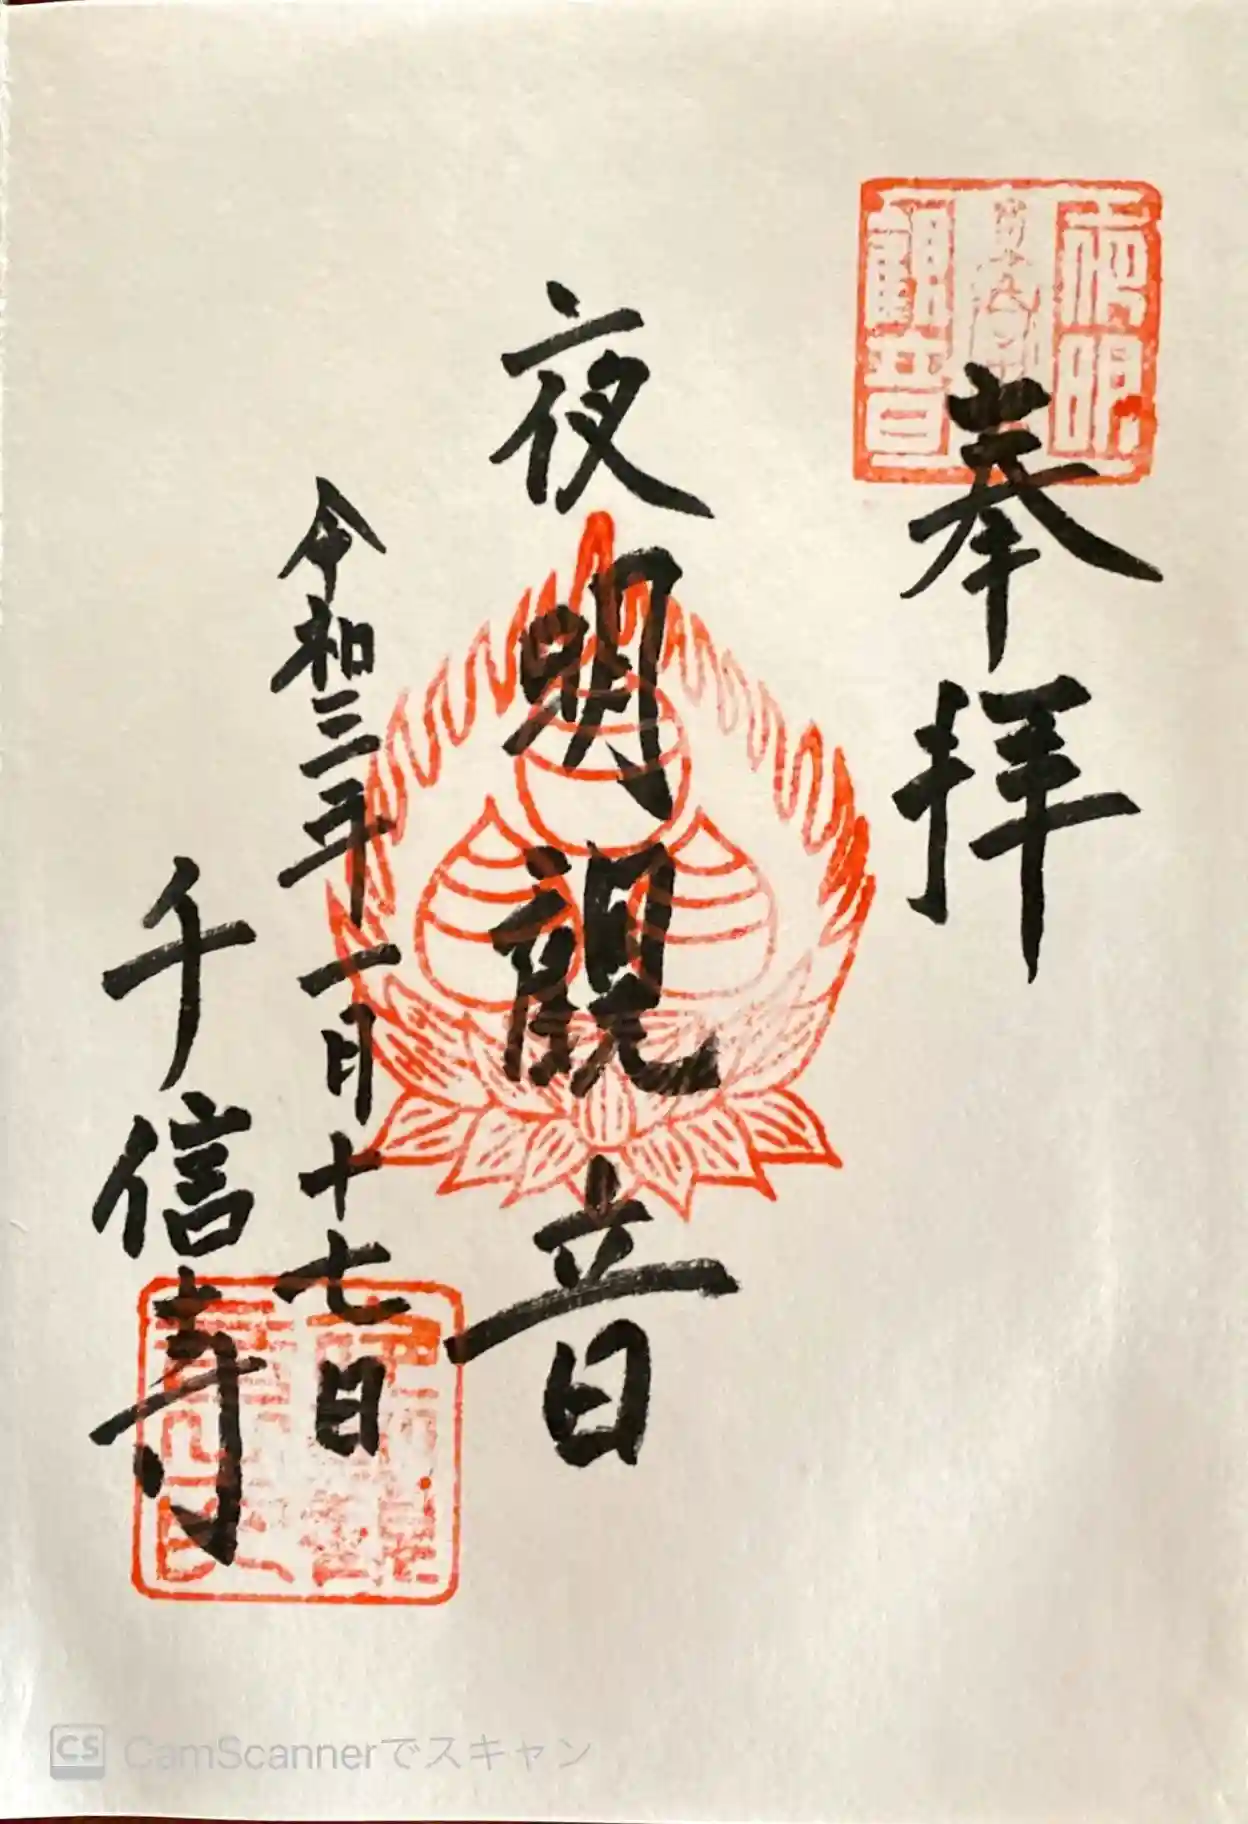 奉拝
夜明観音
夜明観音
令和三年一月十七日
千信寺
CS CamScannerでスキャン